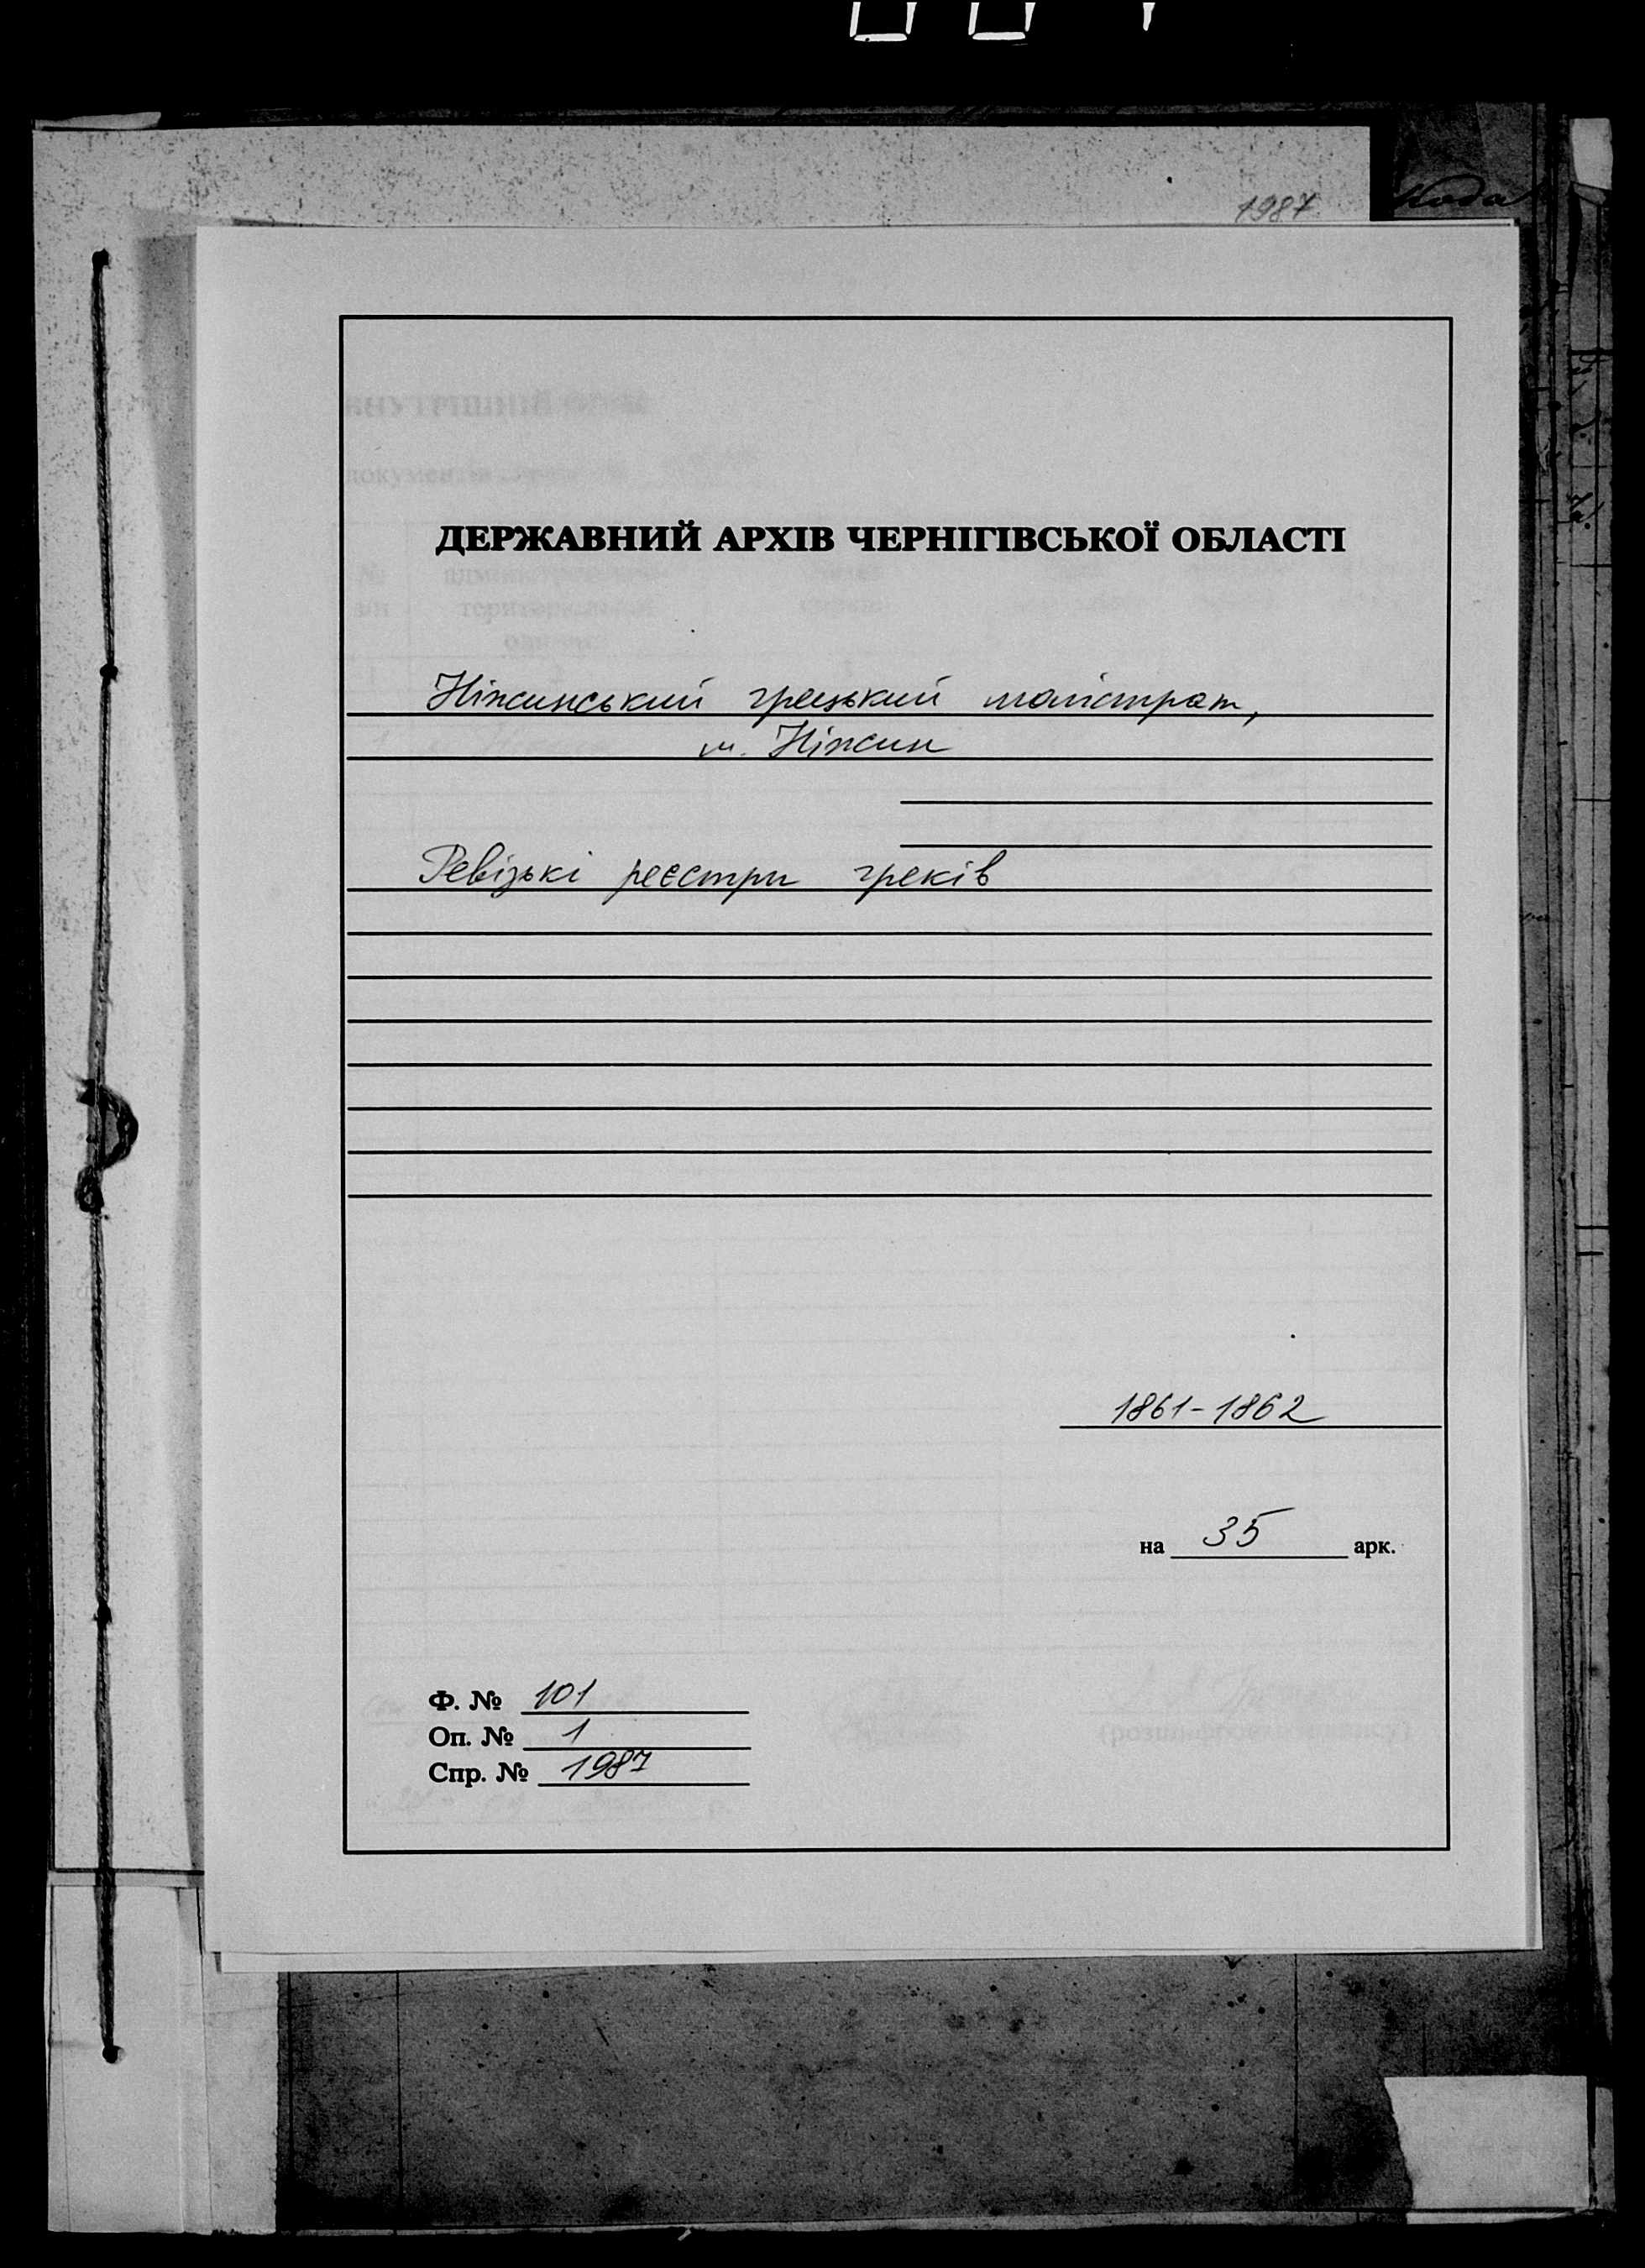 1987
ДЕРЖАВНИЙ АРХІВ ЧЕРНІГІВСЬКОЇ ОБЛАСТІ
Ніжинський грецький магістрат,
м. Ніжин
Ревізькі реєстри греків
1861-1862
на 35 арк.
Ф. № 101
Оп. № 1
Спр. № 1987